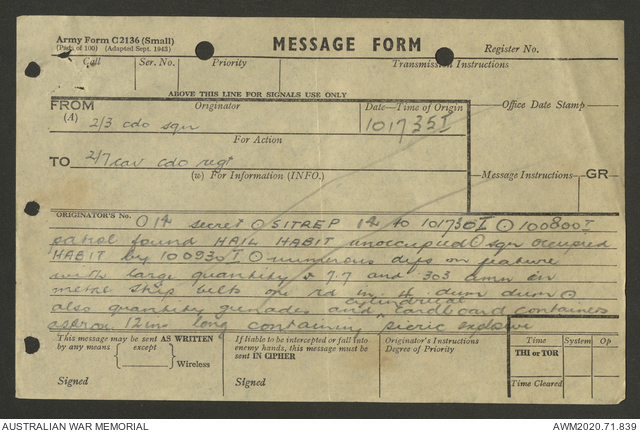 Army Form C2136 (Small)
(Pads of 100) (Adapted Sept. 1943)
MESSAGE FORM
Register No.
Call Ser. No. Priority Transmission Instructions
ABOVE THIS LINE FOR SIGNALS USE ONLY
FROM Originator Date—Time of Origin Office Date Stamp
(A) 2/3 cdo sqn 101735I
For Action
TO 2/7 cav cdo regt
(w) For Information (INFO.) Message Instructions GR
ORIGINATOR'S No.
O14 secret ⊙ SITREP 14 to 101730I ⊙ 100800I
patrol found HAIL HABIT unoccupied ⊙ sqn occupied
HABIT by 100930I ⊙ numerous on feature
with large quantity 7.7 and .303 amn in
metal belts one rd in dum dum ⊙
also quantity grenades and cylindrical cardboard containers
approx. 12 ins long containing picric explosive
This message may be sent AS WRITTEN
by any means except
Wireless
Signed
If liable to be intercepted or fall into
enemy hands, this message must be
sent IN CIPHER
Signed
Originator's Instructions
Degree of Priority
Time System Op
THI or TOR
Time Cleared
AUSTRALIAN WAR MEMORIAL AWM2020.71.839